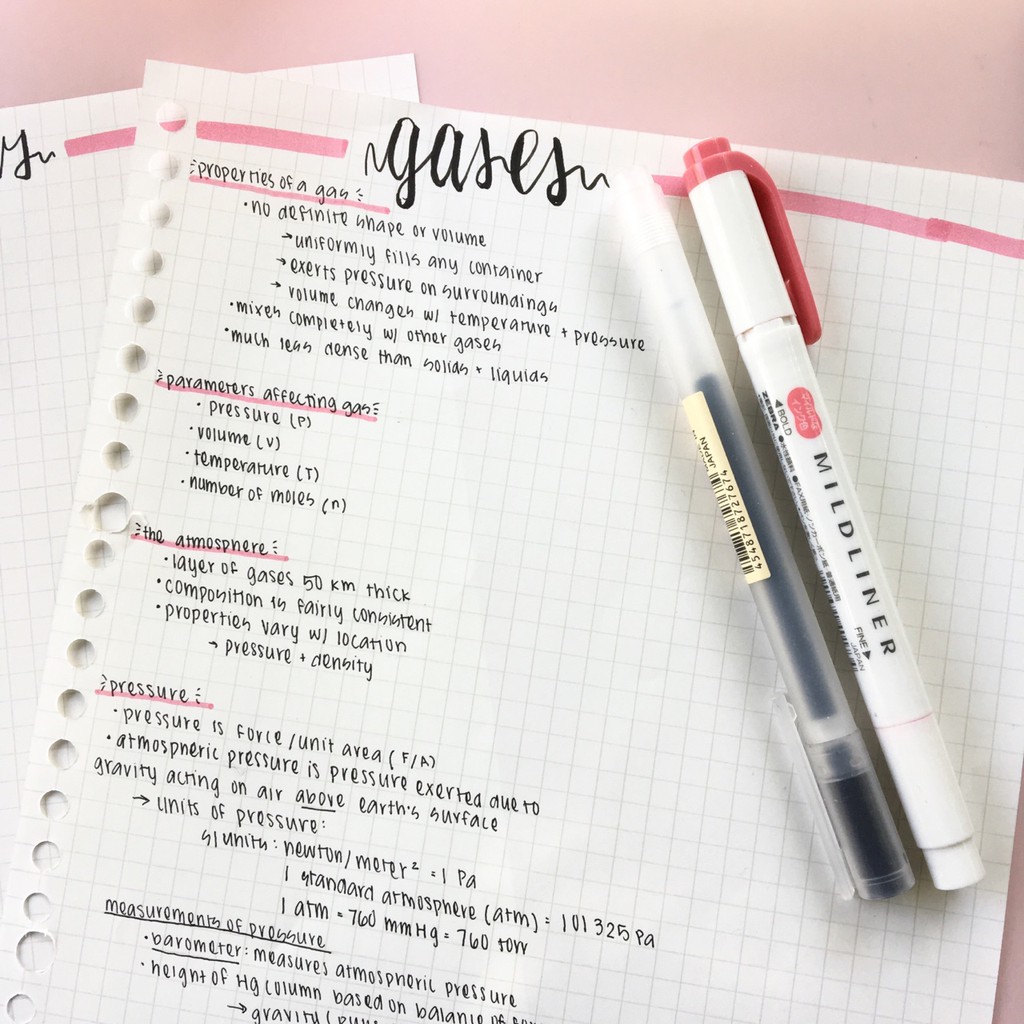 gases
properties of a gas
•no definite shape or volume
→uniformly fills any container
→exerts pressure on surroundings
→ volume changes w/ temperature + pressure
•mixes completely w/ other gases
•much less dense than solids + liquids
parameters affecting gas
• pressure (P)
•volume (V)
•temperature (T)
•number of moles (n)
the atmosphere
•layer of gases 50 km thick
•composition is fairly consistent
•properties vary w/ location
→ pressure + density
pressure
•pressure is force/unit area (F/A)
•atmospheric pressure is pressure exerted due to
gravity acting on air above earth's surface
→ units of pressure:
SI units: newton/meter² = 1 Pa
1 standard atmosphere (atm) = 101 325 Pa
1 atm = 760 mmHg = 760 torr
measurements of pressure
•barometer: measures atmospheric pressure
•height of Hg column based on balance of
→gravity
JAPAN
4548718727674
マイルドな
インク色
◀BOLD
ZEBRA
MILDLINER
FINE▶
JAPAN